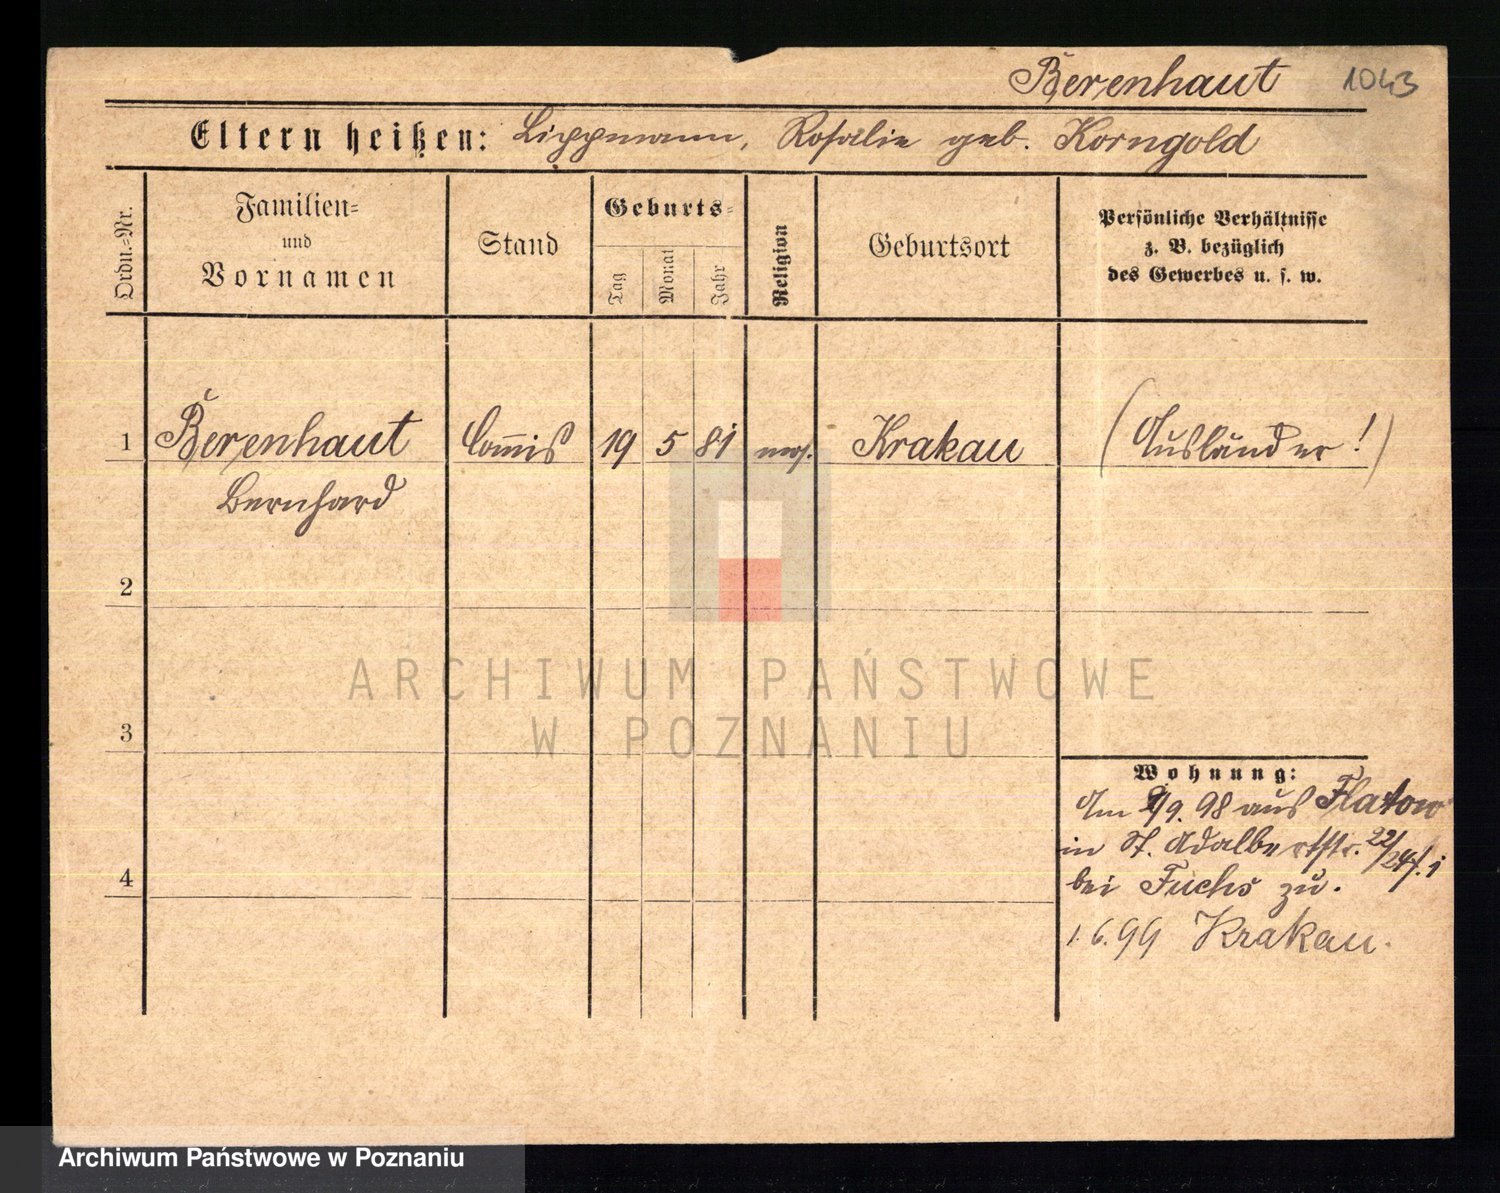 Berenhaut 1043
Eltern heißen: Lippmann, Rosalie geb. Korngold
Ordn.=Nr.
Familien=
und
Vornamen
Stand
Geburts=
Tag
Monat
Jahr
Religion
Geburtsort
Persönliche Verhältnisse
z. B. bezüglich
des Gewerbes u. s. w.
1 Berenhaut Commis 19 5 81 mos. Krakau (Ausländer!)
Bernhard
2
3
4
Wohnung:
Am 9/9. 98 aus Flatow
in St. Adalbertstr. 22/
bei Fuchs zu.
1.6.99 Krakau.
ARCHIWUM PAŃSTWOWE
W POZNANIU
Archiwum Państwowe w Poznaniu